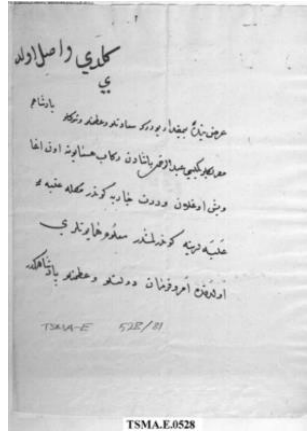 كلدي واصل اولدي
عرض بنده بيمقدار بودركه سعادتلو وعظمتلو پادشاهم
عبد الرحمن پاشادن ركاب همايونه اون اغا
ودرت جاريه كوندرمكله عتبه
عليه لرينه كوندرلمشدر معلوم همايونلري
اولدقده امر وفرمان دولتلو وعظمتلو پادشاهمكدر
TSMA-E 528/81
TSMA.E.0528